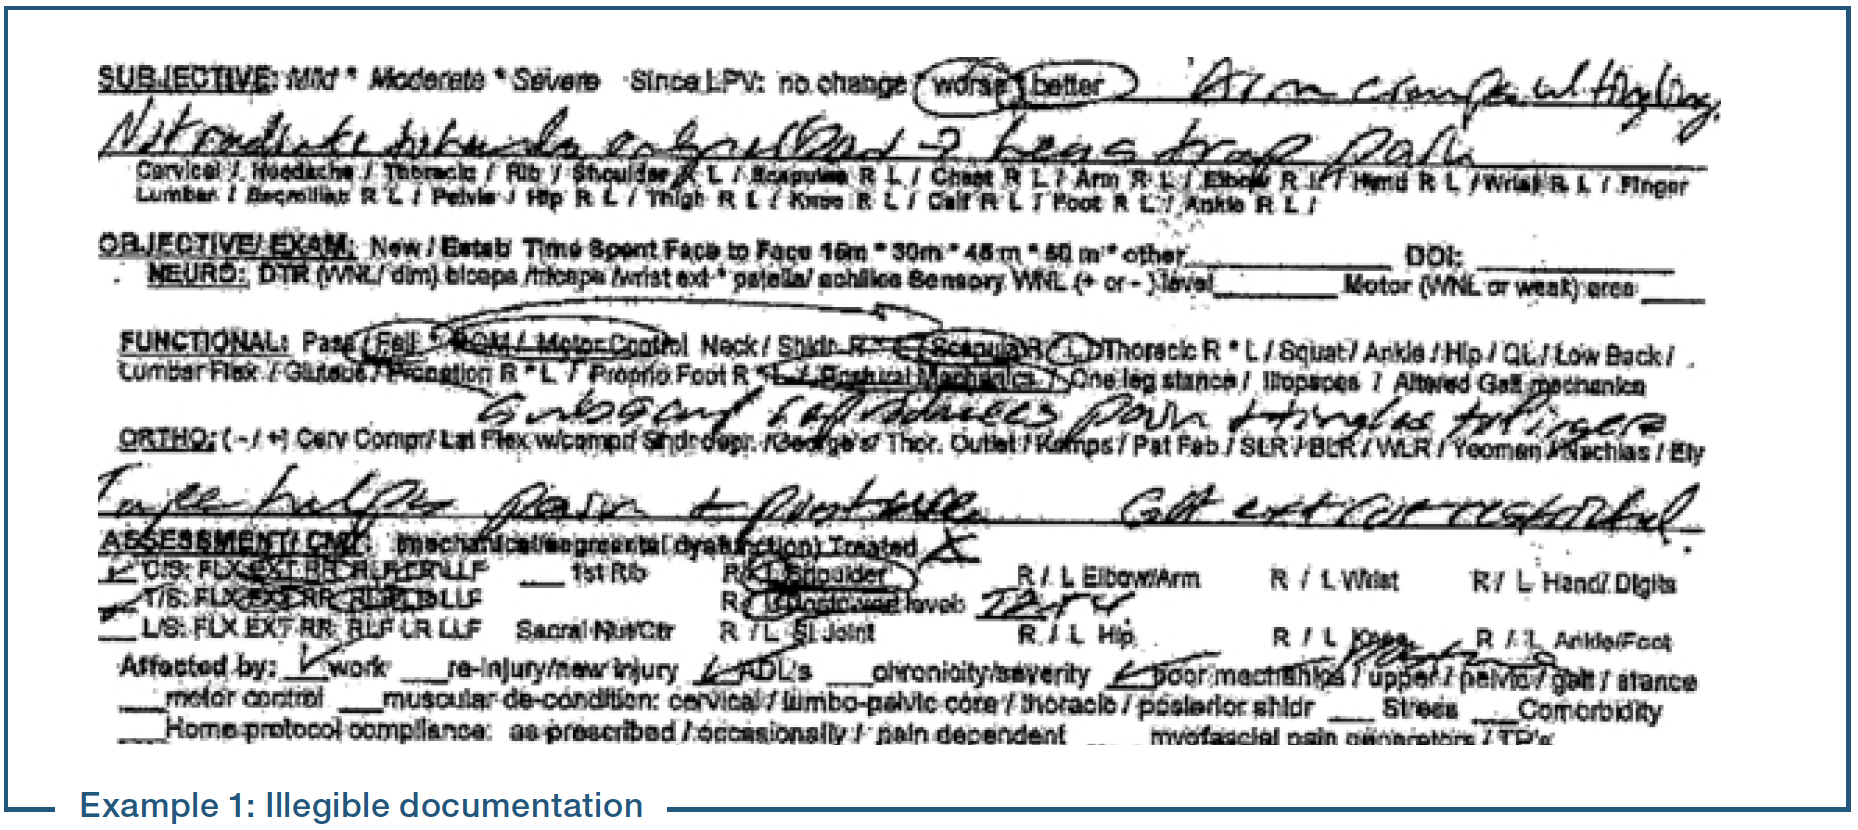 SUBJECTIVE: Mild * Moderate * Severe Since LPV: no change worse better Arm tingling
Not radiate pain
Cervical / Headache / Thoracic / Rib / Shoulder R L / Scapulae R L / Chest R L / Arm R L / Elbow R L / Hand R L / Wrist R L / Finger
Lumbar / Sacroiliac R L / Pelvis / Hip R L / Thigh R L / Knee R L / Calf R L / Foot R L / Ankle R L /
OBJECTIVE/ EXAM: New / Estab Time Spent Face to Face 15m * 30m * 45 m * 60 m * other DOI:
NEURO: DTR (WNL/ dim) biceps /triceps /wrist ext * patella/ achilles Sensory WNL (+ or - ) level Motor (WNL or weak) area
FUNCTIONAL: Pass / Fail * ROM / Motor Control Neck / Shldr R * L / Scapula R L Thoracic R * L / Squat / Ankle / Hip / QL / Low Back /
Lumbar Flex / Gluteus / Pronation R * L / Proprio Foot R * L / Mechanics / One leg stance / Iliopsoas / Altered Gait mechanics
subscap reproduces pain + tingles to fingers
ORTHO: ( - / +) Cerv Compr/ Lat Flex w/compr/ Shldr depr. /George's/ Thor. Outlet / Kemps / Pat Fab / SLR / BLR / WLR / Yeoman / Nachlas / Ely
Tape helps pain + posture. ext
ASSESSMENT/ CMT: (mechanical/segmental dysfunction) Treated X
C/S: FLX EXT RR RLF LR LLF 1st Rib R / L Shoulder R / L Elbow/Arm R / L Wrist R / L Hand/ Digits
T/S: FLX EXT RR RLF LR LLF R / L level:
L/S: FLX EXT RR RLF LR LLF Sacral Nut/Ctr R / L SI Joint R / L Hip R / L Knee R / L Ankle/Foot
Affected by: work re-injury/new injury ADL's chronicity/severity poor mechanics / upper / pelvic / gait / stance
motor control muscular de-condition: cervical / lumbo-pelvic core / thoracic / posterior shldr Stress Comorbidity
Home protocol compliance: as prescribed / occasionally / pain dependent myofascial pain generators / TP's
Example 1: Illegible documentation